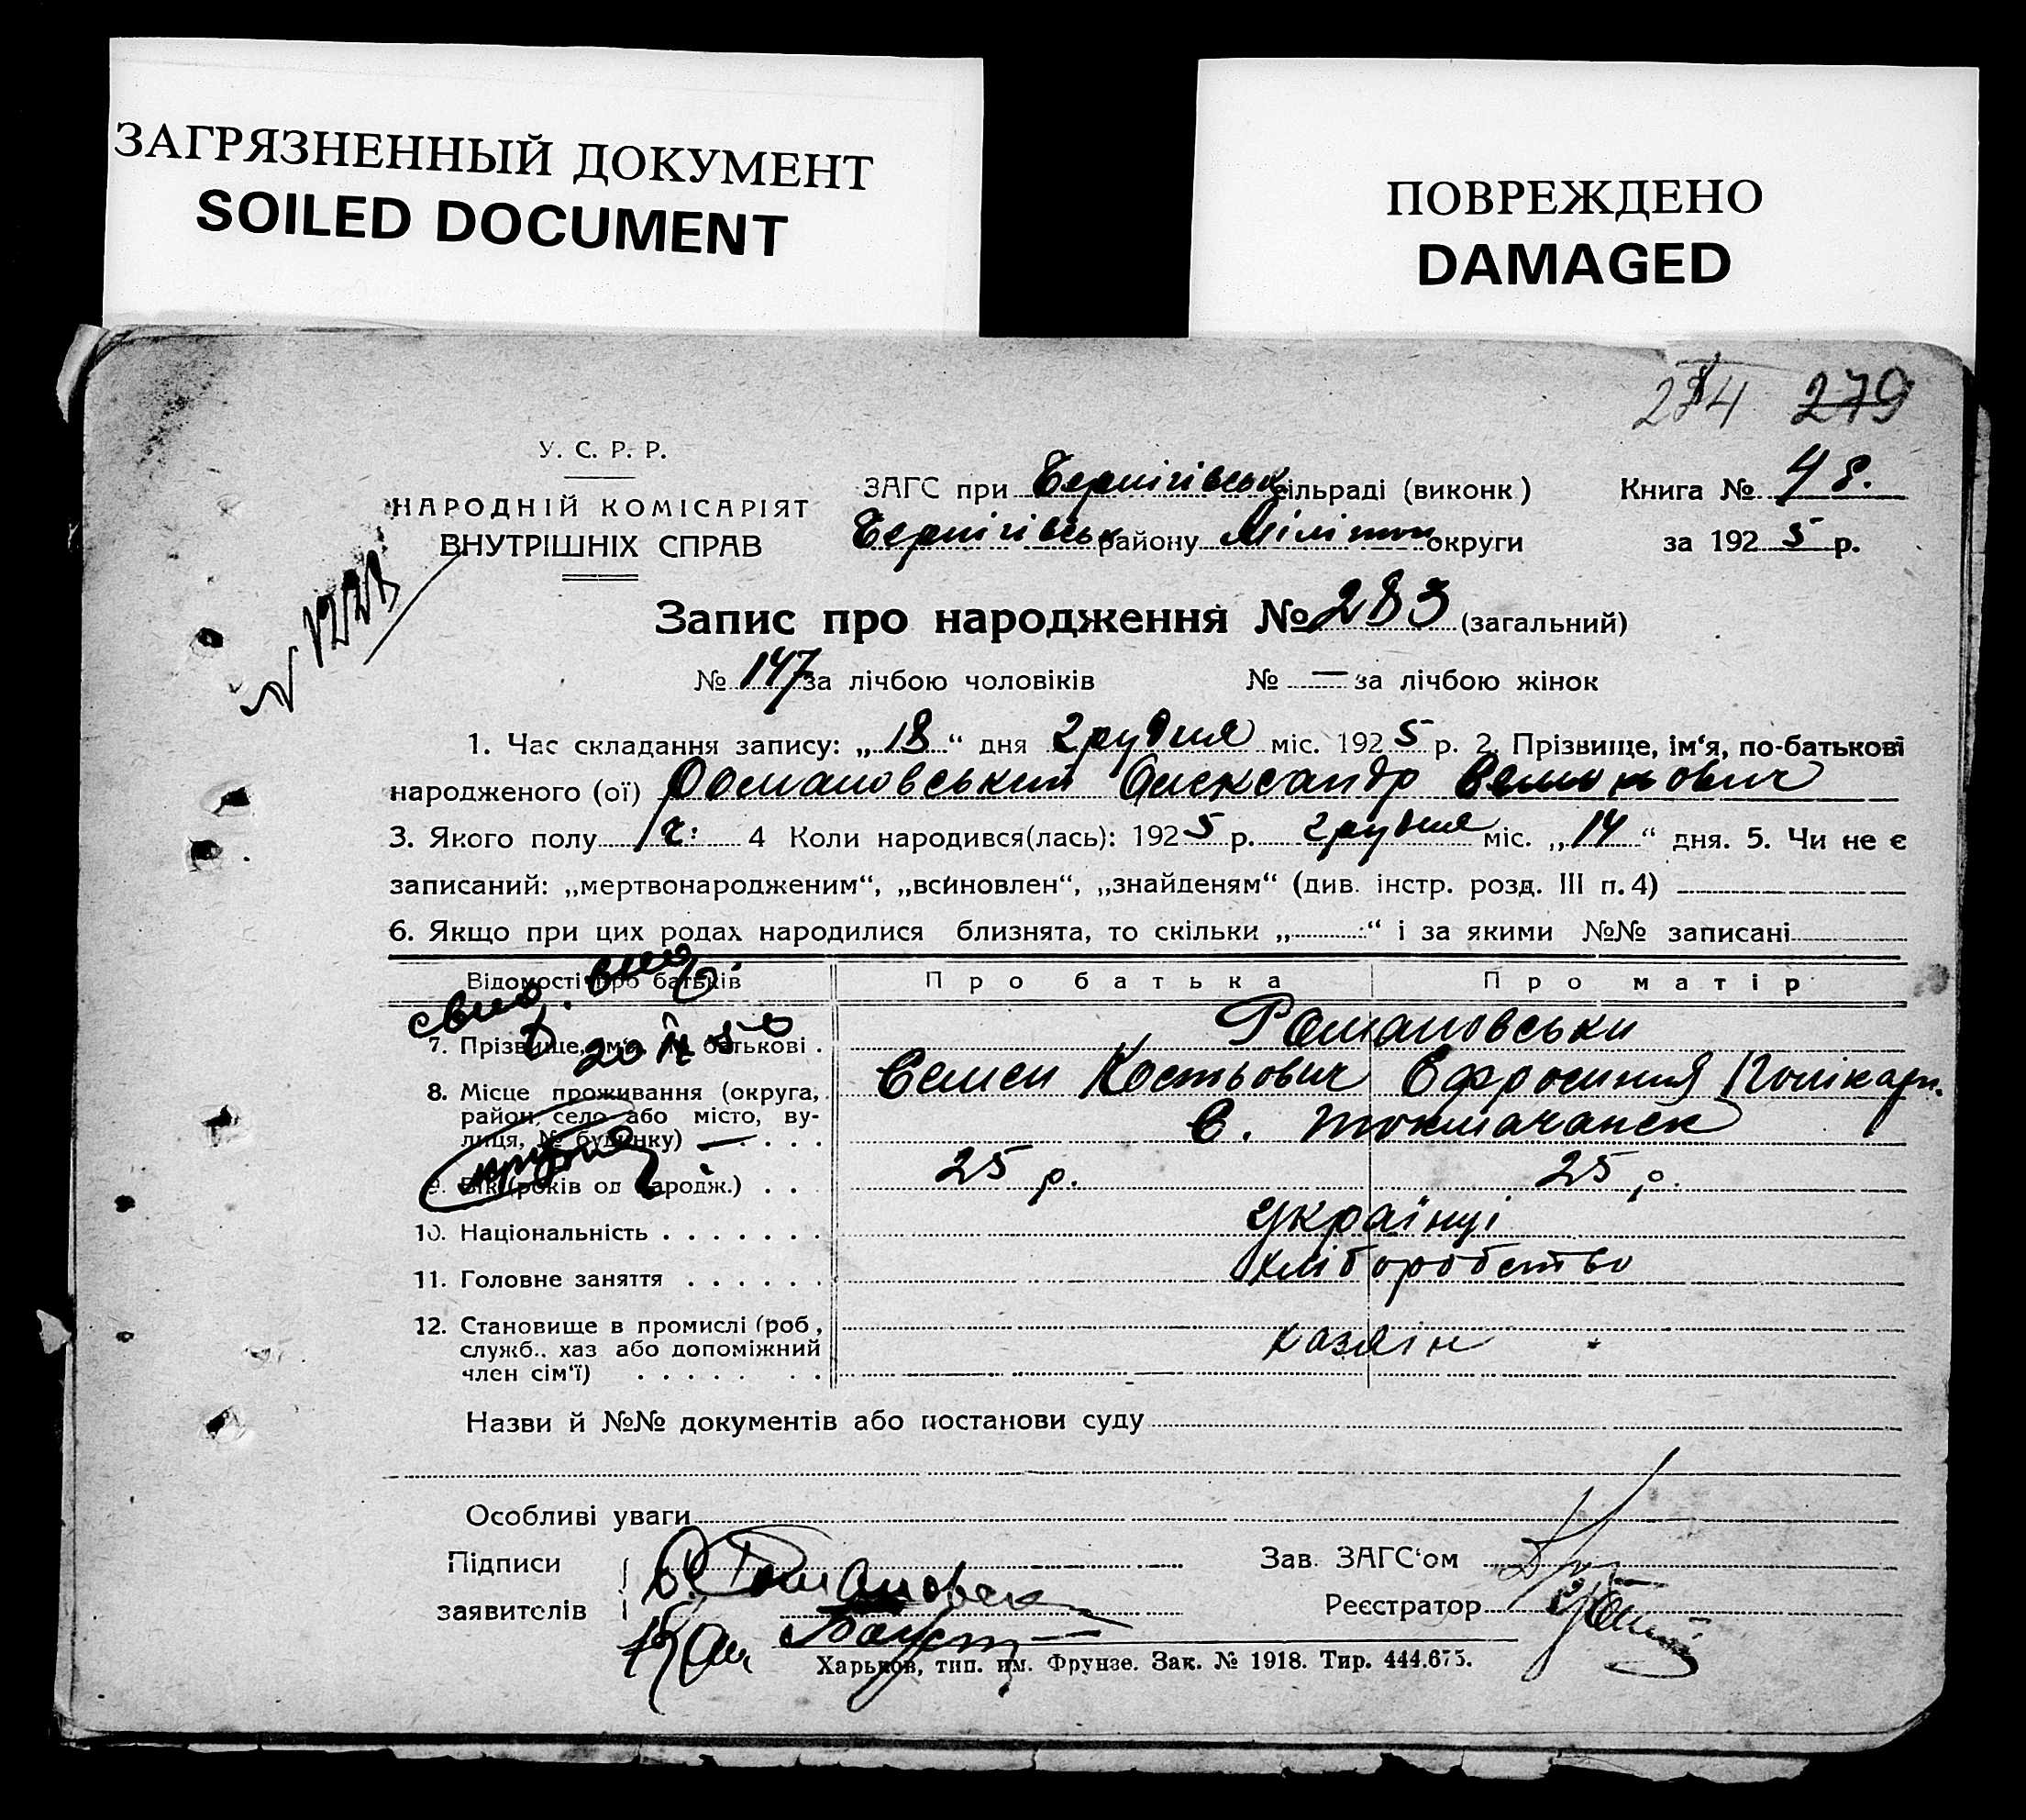 ЗАГРЯЗНЕННЫЙ ДОКУМЕНТ
SOILED DOCUMENT
ПОВРЕЖДЕНО
DAMAGED
274 279
У. С. Р. Р.
НАРОДНІЙ КОМІСАРІЯТ
ВНУТРІШНІХ СПРАВ
ЗАГС при Чернігівськ сільраді (виконк) Книга № 48.
Чернігівськ району Мелітоп округи за 1925 р.
Запис про народження № 283 (загальний)
№ 147 за лічбою чоловіків № — за лічбою жінок
1. Час складання запису: „18“ дня Грудня міс. 1925 р. 2. Прізвище, ім‘я, по-батькові
народженого (ої) Романовський Олександр Семенович
3. Якого полу ч. 4 Коли народився(лась): 1925 р. Грудня міс. „14“ дня. 5. Чи не є
записаний: „мертвонародженим“, „всиновлен“, „знайденям“ (див. інстр. розд. III п. 4)
6. Якщо при цих родах народилися близнята, то скільки „ “ і за якими №№ записані
Відомості про батьків Про батька Про матір
7. Прізвище, ім‘я, по батькові . Романовськи
8. Місце проживання (округа, Семен Костьович Єфросиния Полікарп.
район, село або місто, ву-
лиця, № будинку) С. Токмачанск
9. Вік (років од народж.) . . 25 р. 25 р.
10. Національність . . . . . . . Українці
11. Головне заняття . . . . . . хліборобство
12. Становище в промислі (роб,
служб., хаз або допоміжний хазяїн
член сім‘ї) . . . . . . .
Назви й №№ документів або постанови суду
Особливі уваги
Підписи С. Романовск Зав. ЗАГС‘ом
заявителів Реєстратор
Харьков, тип. им. Фрунзе. Зак. № 1918. Тир. 444.675.